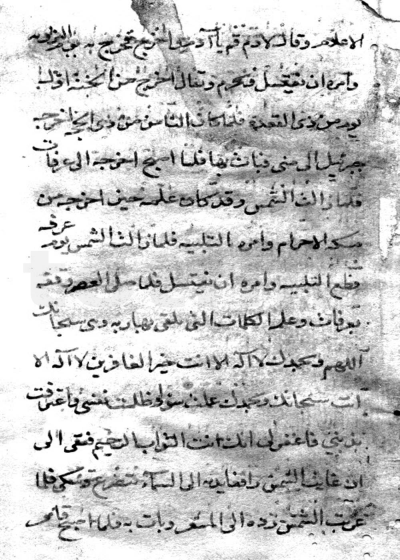 الاعلام وقال لادم قم يا آدم فخرج به يوم التروية
وامره ان يغتسل فيحرم وتعال اخرج من الجنة اول
يوم من ذى القعدة فلما كان الثامن من ذى الحجه اخرجه
جبرئيل الى منى فبات بها فلما اصبح اخرجه الى عرفات
فلما زالت الشمس وقد كان علمه حين اخرجه من
مكه الاحرام وامره التلبيه فلما زالت الشمس يوم عرفه
قطع التلبيه وامره ان يغتسل فلما صلى العصر وقفه
بعرفات وعلمه الكلمات التى تلقى بها ربه وهى سبحانك
اللهم وبحمدك لا اله الا انت خير الغافرين لا اله الا
انت سبحانك وبحمدك علمت سوءا وظلمت نفسى فاعترفت
بذنبى فاغفر لى انك انت التواب الرحيم فبقى الى
ان غابت الشمس رافعا يديه الى السماء يتضرع ويبكى فلما
غربت الشمس رده الى المشعر وبات به فلما اصبح قام